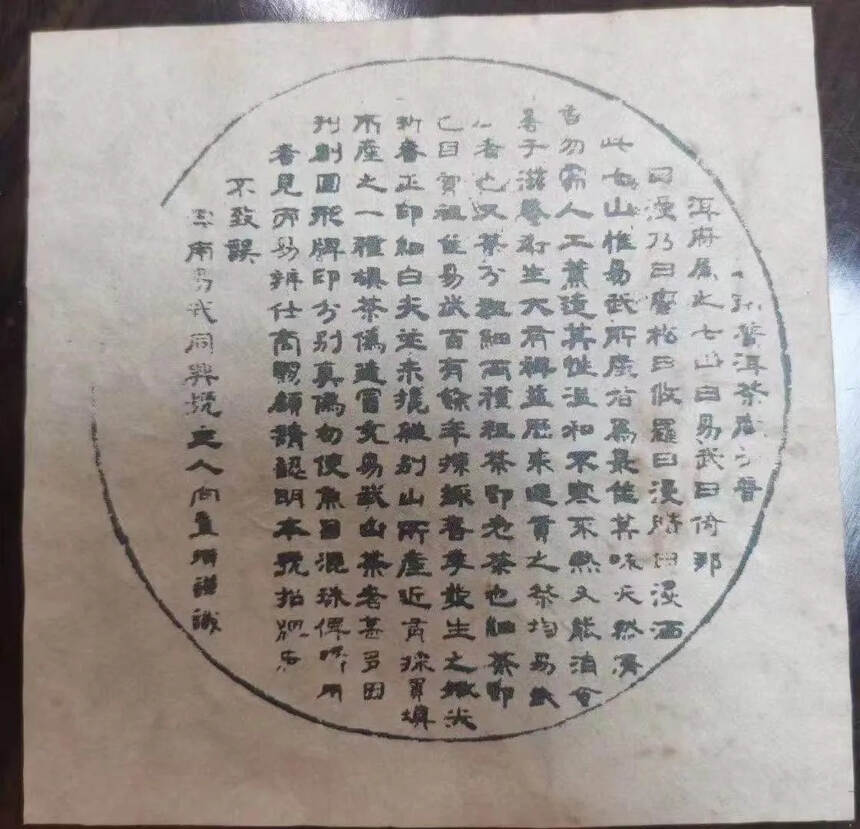 普洱茶產
洱府屬之七山曰易武曰倚邦
曰漫乃曰蠻松曰攸羅曰漫腊曰漫洒
此七山惟易武所產者為最佳其味天然清
香勿需人工薰造其性溫和不寒不熱又能消食
暑于滋養衛生大有裨益歷來進貢之茶均易武
者也又茶分粗細兩種粗茶即老茶也細茶即
祖住易武百有餘年揀採春季發生之嫩尖
新春正印細白尖並未攙雜別山所產近有採買壩
所產之一種壩茶偽造冒充易武山茶者甚多因
刊刻圓形牌印分別真偽勿使魚目混珠俾購用
者見而易辨仕商賜顧請認明本號招牌庶
不致誤
雲南易武同興號主人向謹識